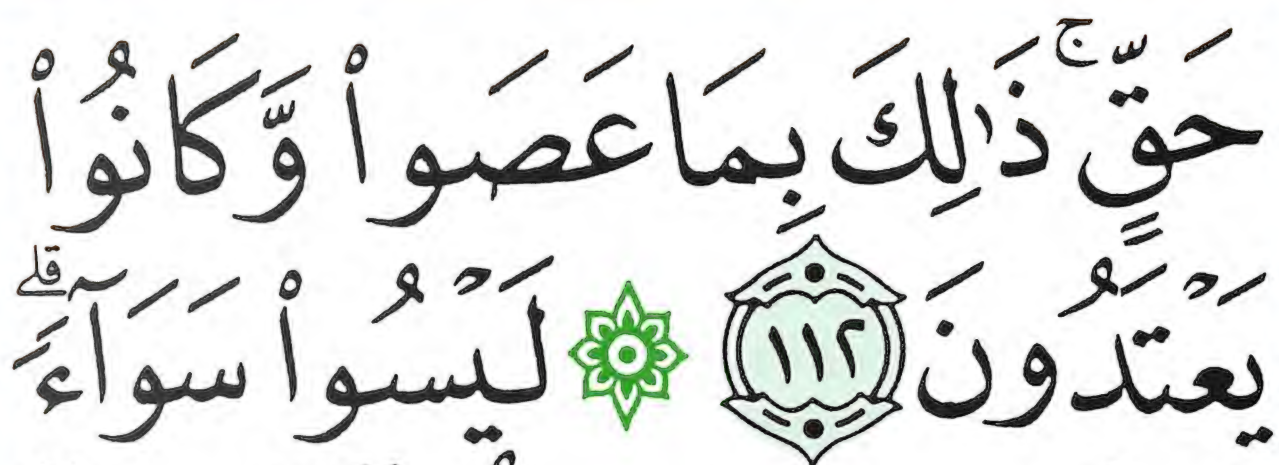 حَقّٖۚ ذَٰلِكَ بِمَا عَصَواْ وَّكَانُواْ
يَعۡتَدُونَ ١١٢ ۞ لَيۡسُواْ سَوَآءَۗ